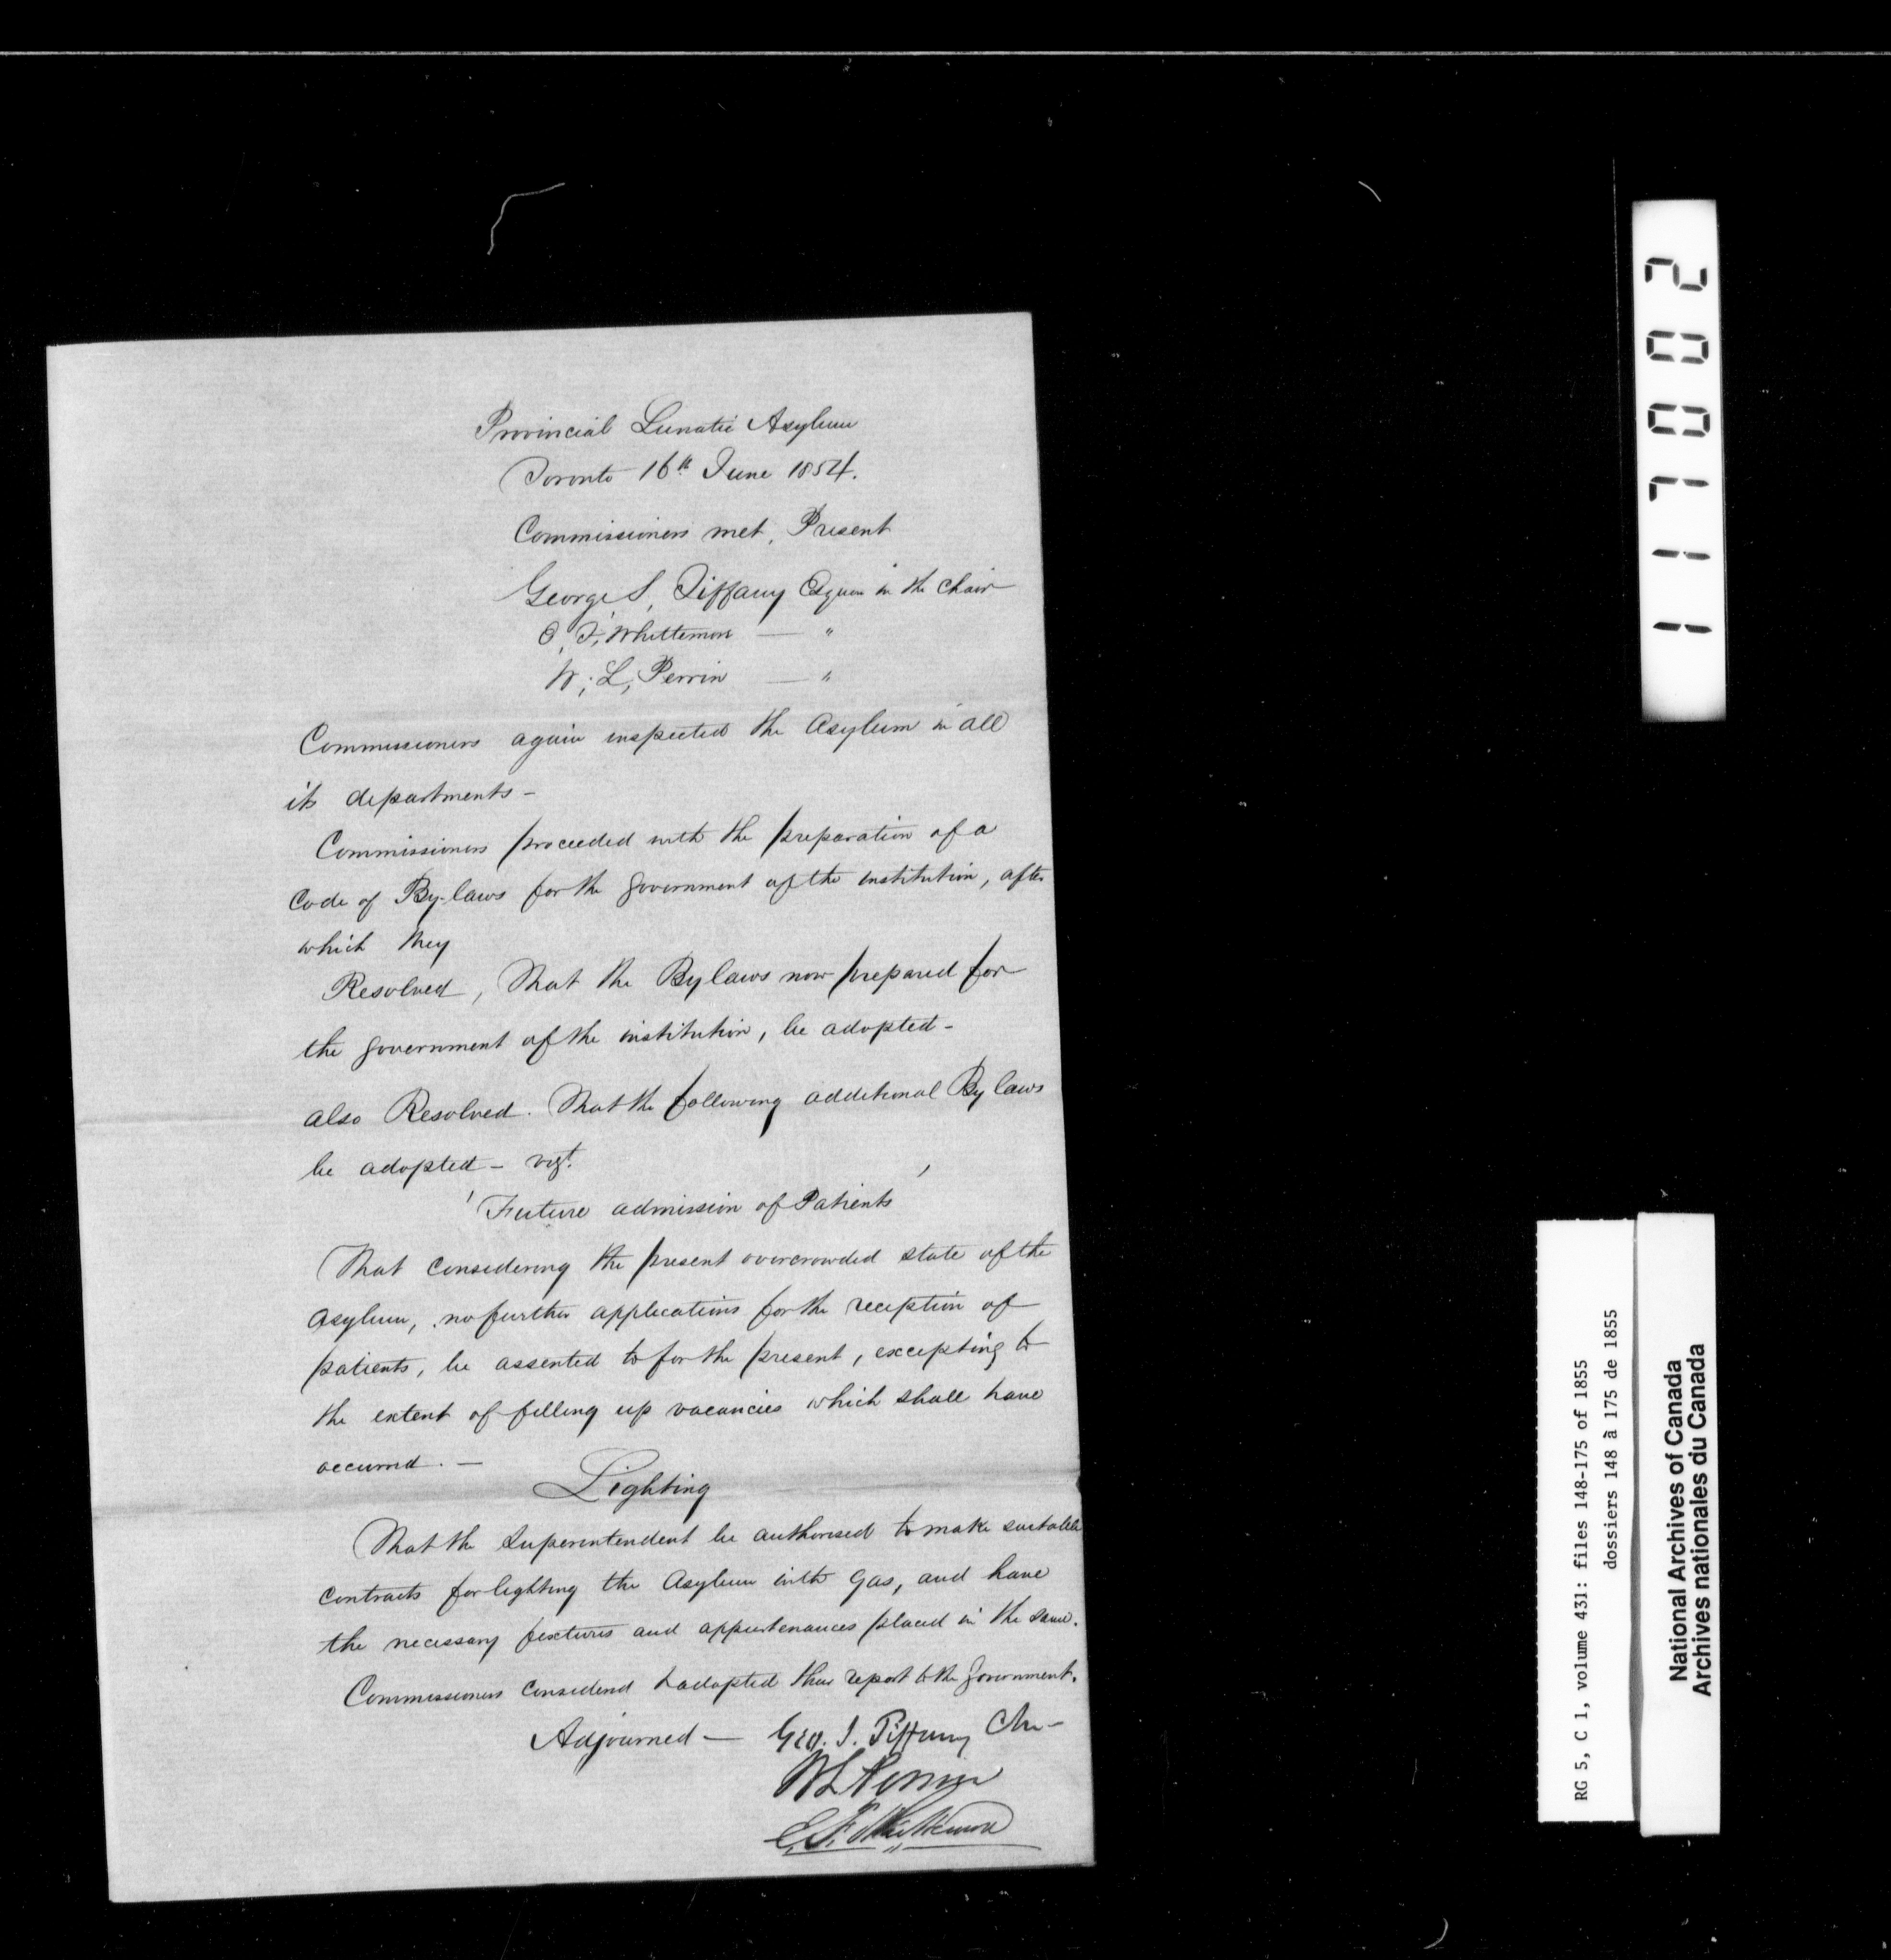 Provincial Lunatic Asylum
Toronto 16th June 1854.
Commissioners met, Present
George S, Tiffany Esquire in the Chair
E, F, Whittemore — "
W, L, Perrin — "
Commissioners again inspected the Asylum in all
its departments -
Commissioners proceeded with the preparation of a
Code of By-laws for the government of the institution, after
which they
Resolved, That the Bylaws now prepared for
the government of the institution, be adopted -
also Resolved. That the following additional By laws
be adopted - vizt.
'Future admission of Patients'
That considering the present overcrowded state of the
Asylum, no further applications for the reception of
patients, be assented to for the present, excepting to
the extent of filling up vacancies which shall have
occurred. —
Lighting
That the Superintendent be authorised to make suitable
contracts for lighting the Asylum with Gas, and have
the necessary fixtures and appurtenances placed in the same.
Commissioners considered & adopted their report to the Government.
Adjourned — Geo. S. Tiffany Chn -
W L Perrin
E. F. Whittemore
117002
RG 5, C 1, volume 431: files 148-175 of 1855
dossiers 148 à 175 de 1855
National Archives of Canada
Archives nationales du Canada